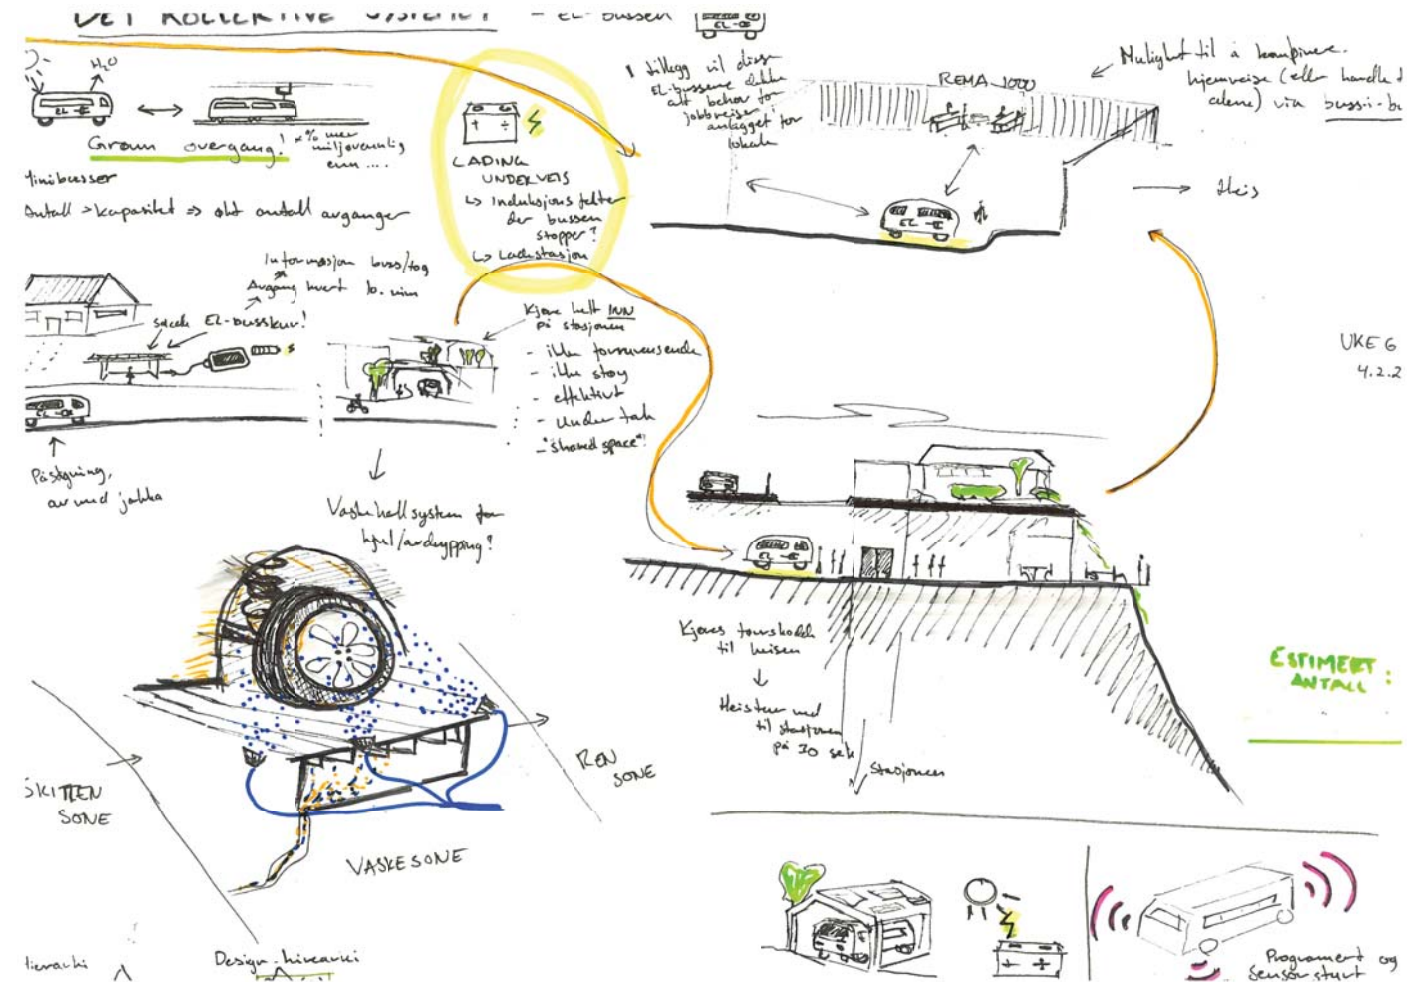 DET KOLLEKTIVE SYSTEMET - EL-bussen
EL
H₂O
EL
Grønn overgang!
% mer
miljøvennlig
enn ....
Minibusser
Antall > kapasitet => økt antall avganger
LADING
UNDERVEIS
↳ Induksjonsfelter
der bussen
stopper?
↳ Ladestasjon
I tillegg vil disse
EL-bussene dekke
alt behov for
jobbreiser
anlegget for
lokale
REMA 1000
Mulighet til å kombinere
hjemreise (eller handle
alene) via buss-i-bu
→ Heis
EL
Informasjon buss/tog
Avgang hvert 10. min
EL-busskur!
EL
Påstigning,
av med jakka
Kjøre helt INN
på stasjonen
- ikke forurensende
- ikke støy
- effektivt
- under tak
- "shared space"!
UKE 6
4.2.2
Vaskehallsystem for
hjul/avdrypping?
Kjøres tørrskodd
til heisen
↓
Heistur ned
til stasjonen
på 30 sek
Stasjonen
ESTIMERT:
ANTALL
SKITTEN
SONE
REN
SONE
VASKESONE
Design-hierarki
hierarki
Programert og
sensorstyrt